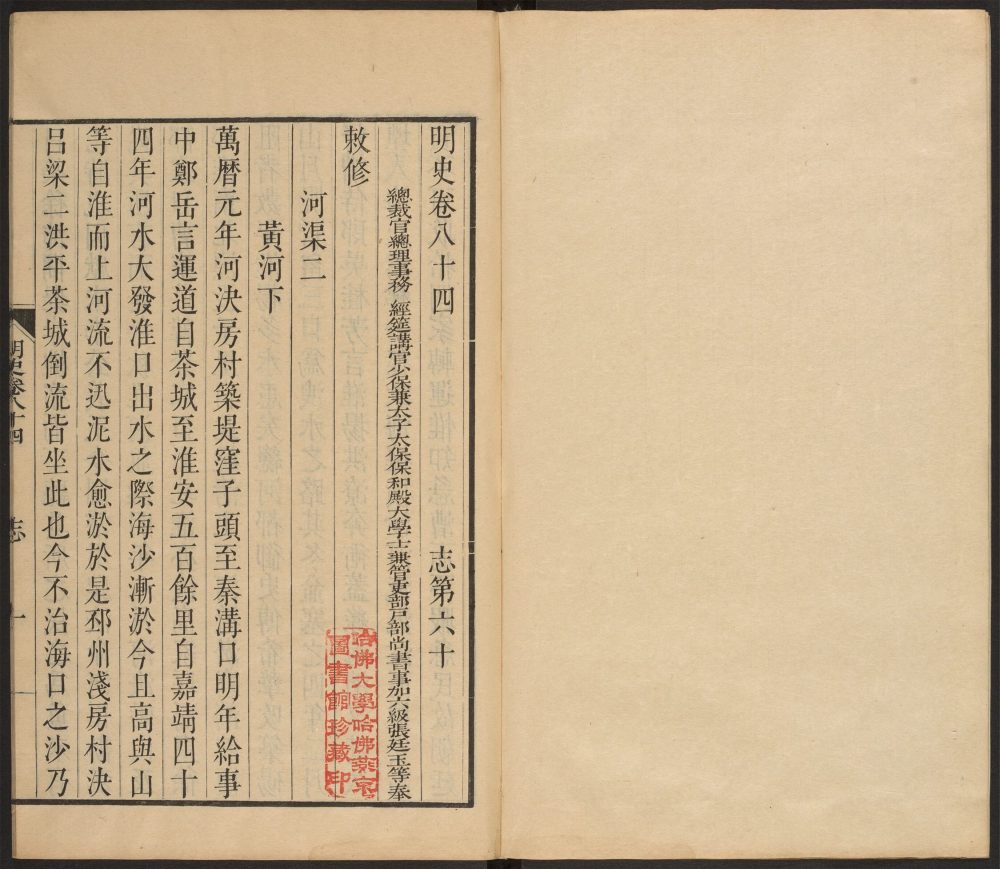 明史卷八十四　志第六十
總裁官總理事務　經筵講官少保兼太子太保保和殿大學士兼管吏部戶部尚書事加六級張廷玉等奉
敕修
河渠二
黃河下
萬曆元年河決房村築堤窪子頭至秦溝口明年給事
中鄭岳言運道自茶城至淮安五百餘里自嘉靖四十
四年河水大發淮口出水之際海沙漸淤今且高與山
等自淮而上河流不迅泥水愈淤於是邳州淺房村決
呂梁二洪平茶城倒流皆坐此也今不治海口之沙乃
明史卷八十四　志　一
哈佛大學哈佛燕京
圖書館珍藏印